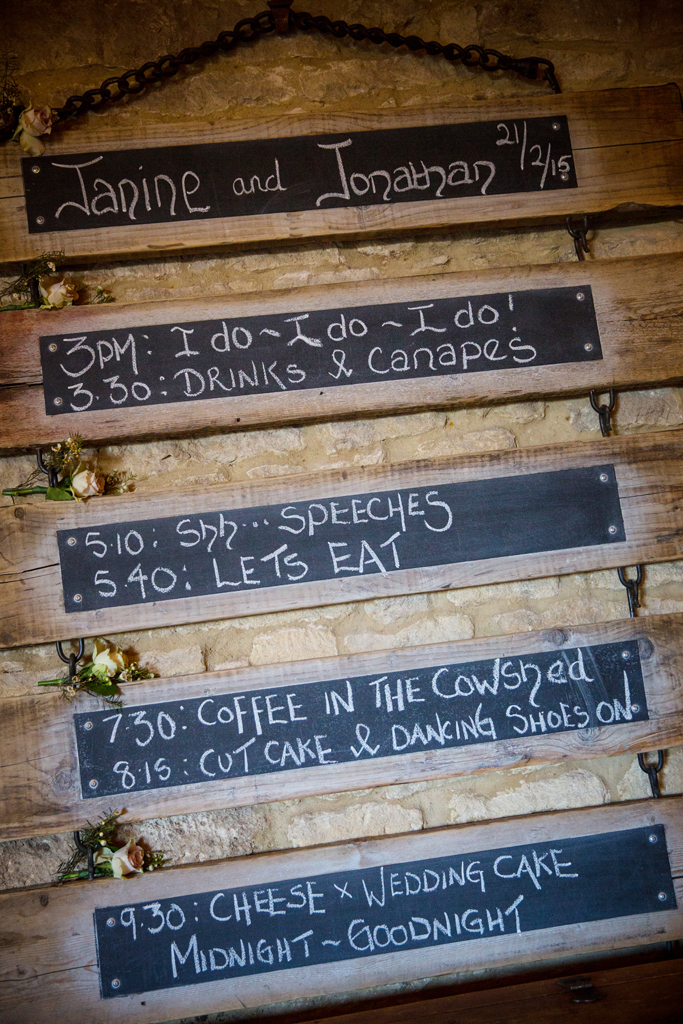 Janine and Jonathan 21/2/15
3PM: I do ~ I do ~ I do!
3.30: DRINKS & Canapes
5.10: Shh... SPEECHES
5.40: LETS EAT
7.30: COFFEE IN THE COWShed
8.15: CUT CAKE & DANCING SHOES ON!
9.30: CHEESE x WEDDING CAKE
MIDNIGHT ~ GOODNIGHT